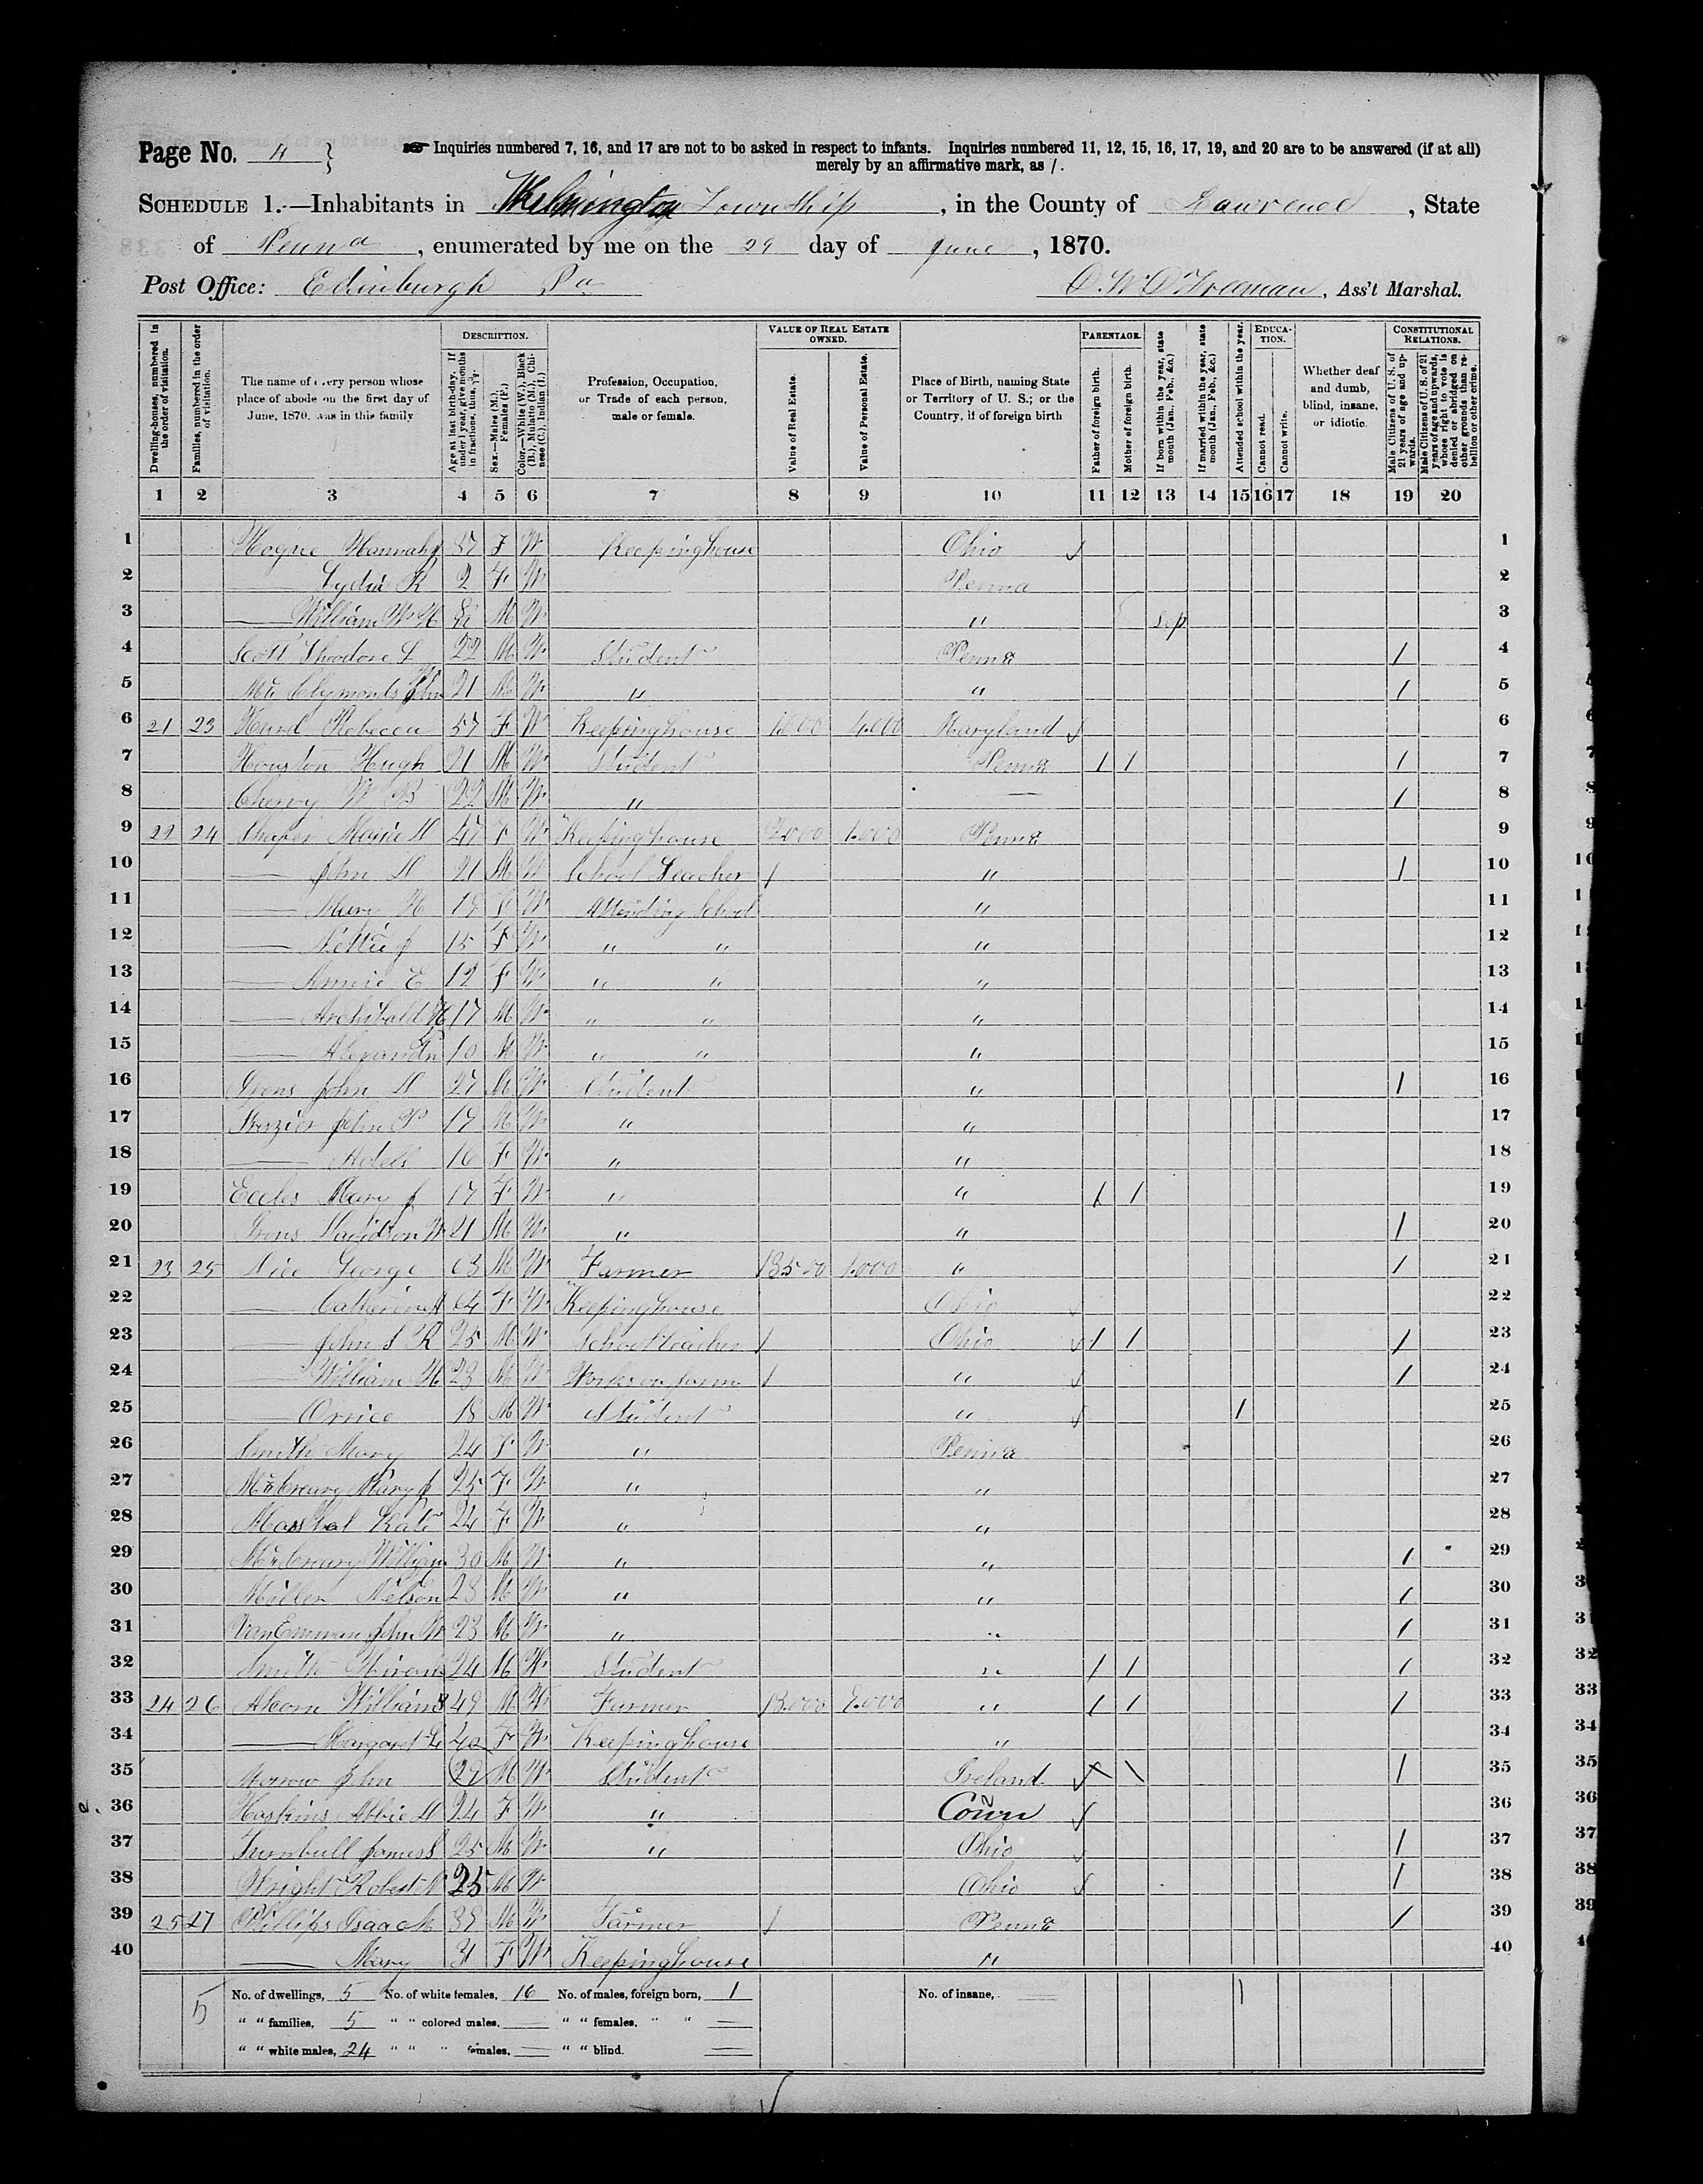 Page No. 4 }
Inquiries numbered 7, 16, and 17 are not to be asked in respect to infants. Inquiries numbered 11, 12, 15, 16, 17, 19, and 20 are to be answered (if at all)
merely by an affirmative mark, as /.
SCHEDULE 1.—Inhabitants in Wilmington Township, in the County of Lawrence, State
of Penna, enumerated by me on the 29 day of June, 1870.
Post Office: Edinburgh Pa
Freeman, Ass't Marshal.
Dwelling-houses, numbered in the order of visitation.
Families, numbered in the order of visitation.
The name of every person whose place of abode on the first day of June, 1870, was in this family
DESCRIPTION.
Age at last birth-day. If under 1 year, give months in fractions, thus, 3/12
Sex.—Males (M.), Females (F.)
Color.—White (W.), Black (B.), Mulatto (M.), Chinese (C.), Indian (I.)
Profession, Occupation, or Trade of each person, male or female.
VALUE OF REAL ESTATE OWNED.
Value of Real Estate.
Value of Personal Estate.
Place of Birth, naming State or Territory of U. S.; or the Country, if of foreign birth
PARENTAGE.
Father of foreign birth.
Mother of foreign birth.
If born within the year, state month (Jan., Feb., &c.)
If married within the year, state month (Jan., Feb., &c.)
Attended school within the year.
EDUCATION.
Cannot read.
Cannot write.
Whether deaf and dumb, blind, insane, or idiotic.
CONSTITUTIONAL RELATIONS.
Male Citizens of U. S. of 21 years of age and upwards.
Male Citizens of U. S. of 21 years of age and upwards, whose right to vote is denied or abridged on other grounds than rebellion or other crime.
1 2 3 4 5 6 7 8 9 10 11 12 13 14 15 16 17 18 19 20
1 Hogue Hannah J 37 F W Keepinghouse Ohio 1
2 — Lydia R 2 F W Penna 2
3 — William W H M W " Sep 3
4 Scott Theodore L 22 M W Student Penna / 4
5 Mc Clymonds John 21 M W " " / 5
6 21 23 Rebecca 57 F W Keepinghouse Maryland 6
7 Houston Hugh 21 M W Student Penna / / / 7
8 Cherry W B 22 M W " — / 8
9 24 Marie 47 F W Keepinghouse 2.000 1.000 Penna 9
10 — John 21 M W School Teacher / " / 10
11 — Mary H F W Attending School " 11
12 — Nettie J 15 F W " " " 12
13 — Annie E 12 F W " " " 13
14 — Archibald 17 M W " " " 14
15 — 10 M W " " " 15
16 Irons John 27 M W Student " / 16
17 John P M W " " 17
18 — Adell 16 F W " " 18
19 Eccles Mary J 17 F W " " / / 19
20 Irons Davidson W 21 M W " " / 20
21 23 25 George 63 M W Farmer 1.000 " / 21
22 — Catherine 64 F W Keepinghouse Ohio 22
23 — John S R 25 M W School teacher / Ohio / / / 23
24 — William H 23 M W Works on farm / " / 24
25 — Orrice 18 M W Student " / 25
26 Smith Mary 24 F W " Penna 26
27 McCreary Mary J 25 F W " " 27
28 Kate 24 F W " " 28
29 McCreary William 30 M W " " / 29
30 Miller Nelson 28 M W " " / 30
31 VanEmman John W 23 M W " " / 31
32 Smith 24 M W Student " / / / 32
33 24 26 Alcorn William 49 M W Farmer 13.000 " / / / 33
34 — Margaret 40 F W Keepinghouse " 34
35 Morrow John M W Student Ireland / 35
36 Hoskins Abbie 24 F W " Conn 36
37 Turnbull James S 25 M W " Ohio / 37
38 Wright Robert 25 M W Ohio / 38
39 25 27 Phillips Isaac M W Farmer / Penna / 39
40 — Mary F W Keepinghouse " 40
5
No. of dwellings, 5 No. of white females, 16 No. of males, foreign born, 1 No. of insane, — 1
" " families, 5 " " colored males, — " " females, " " —
" " white males, 24 " " " females, — " " blind. —